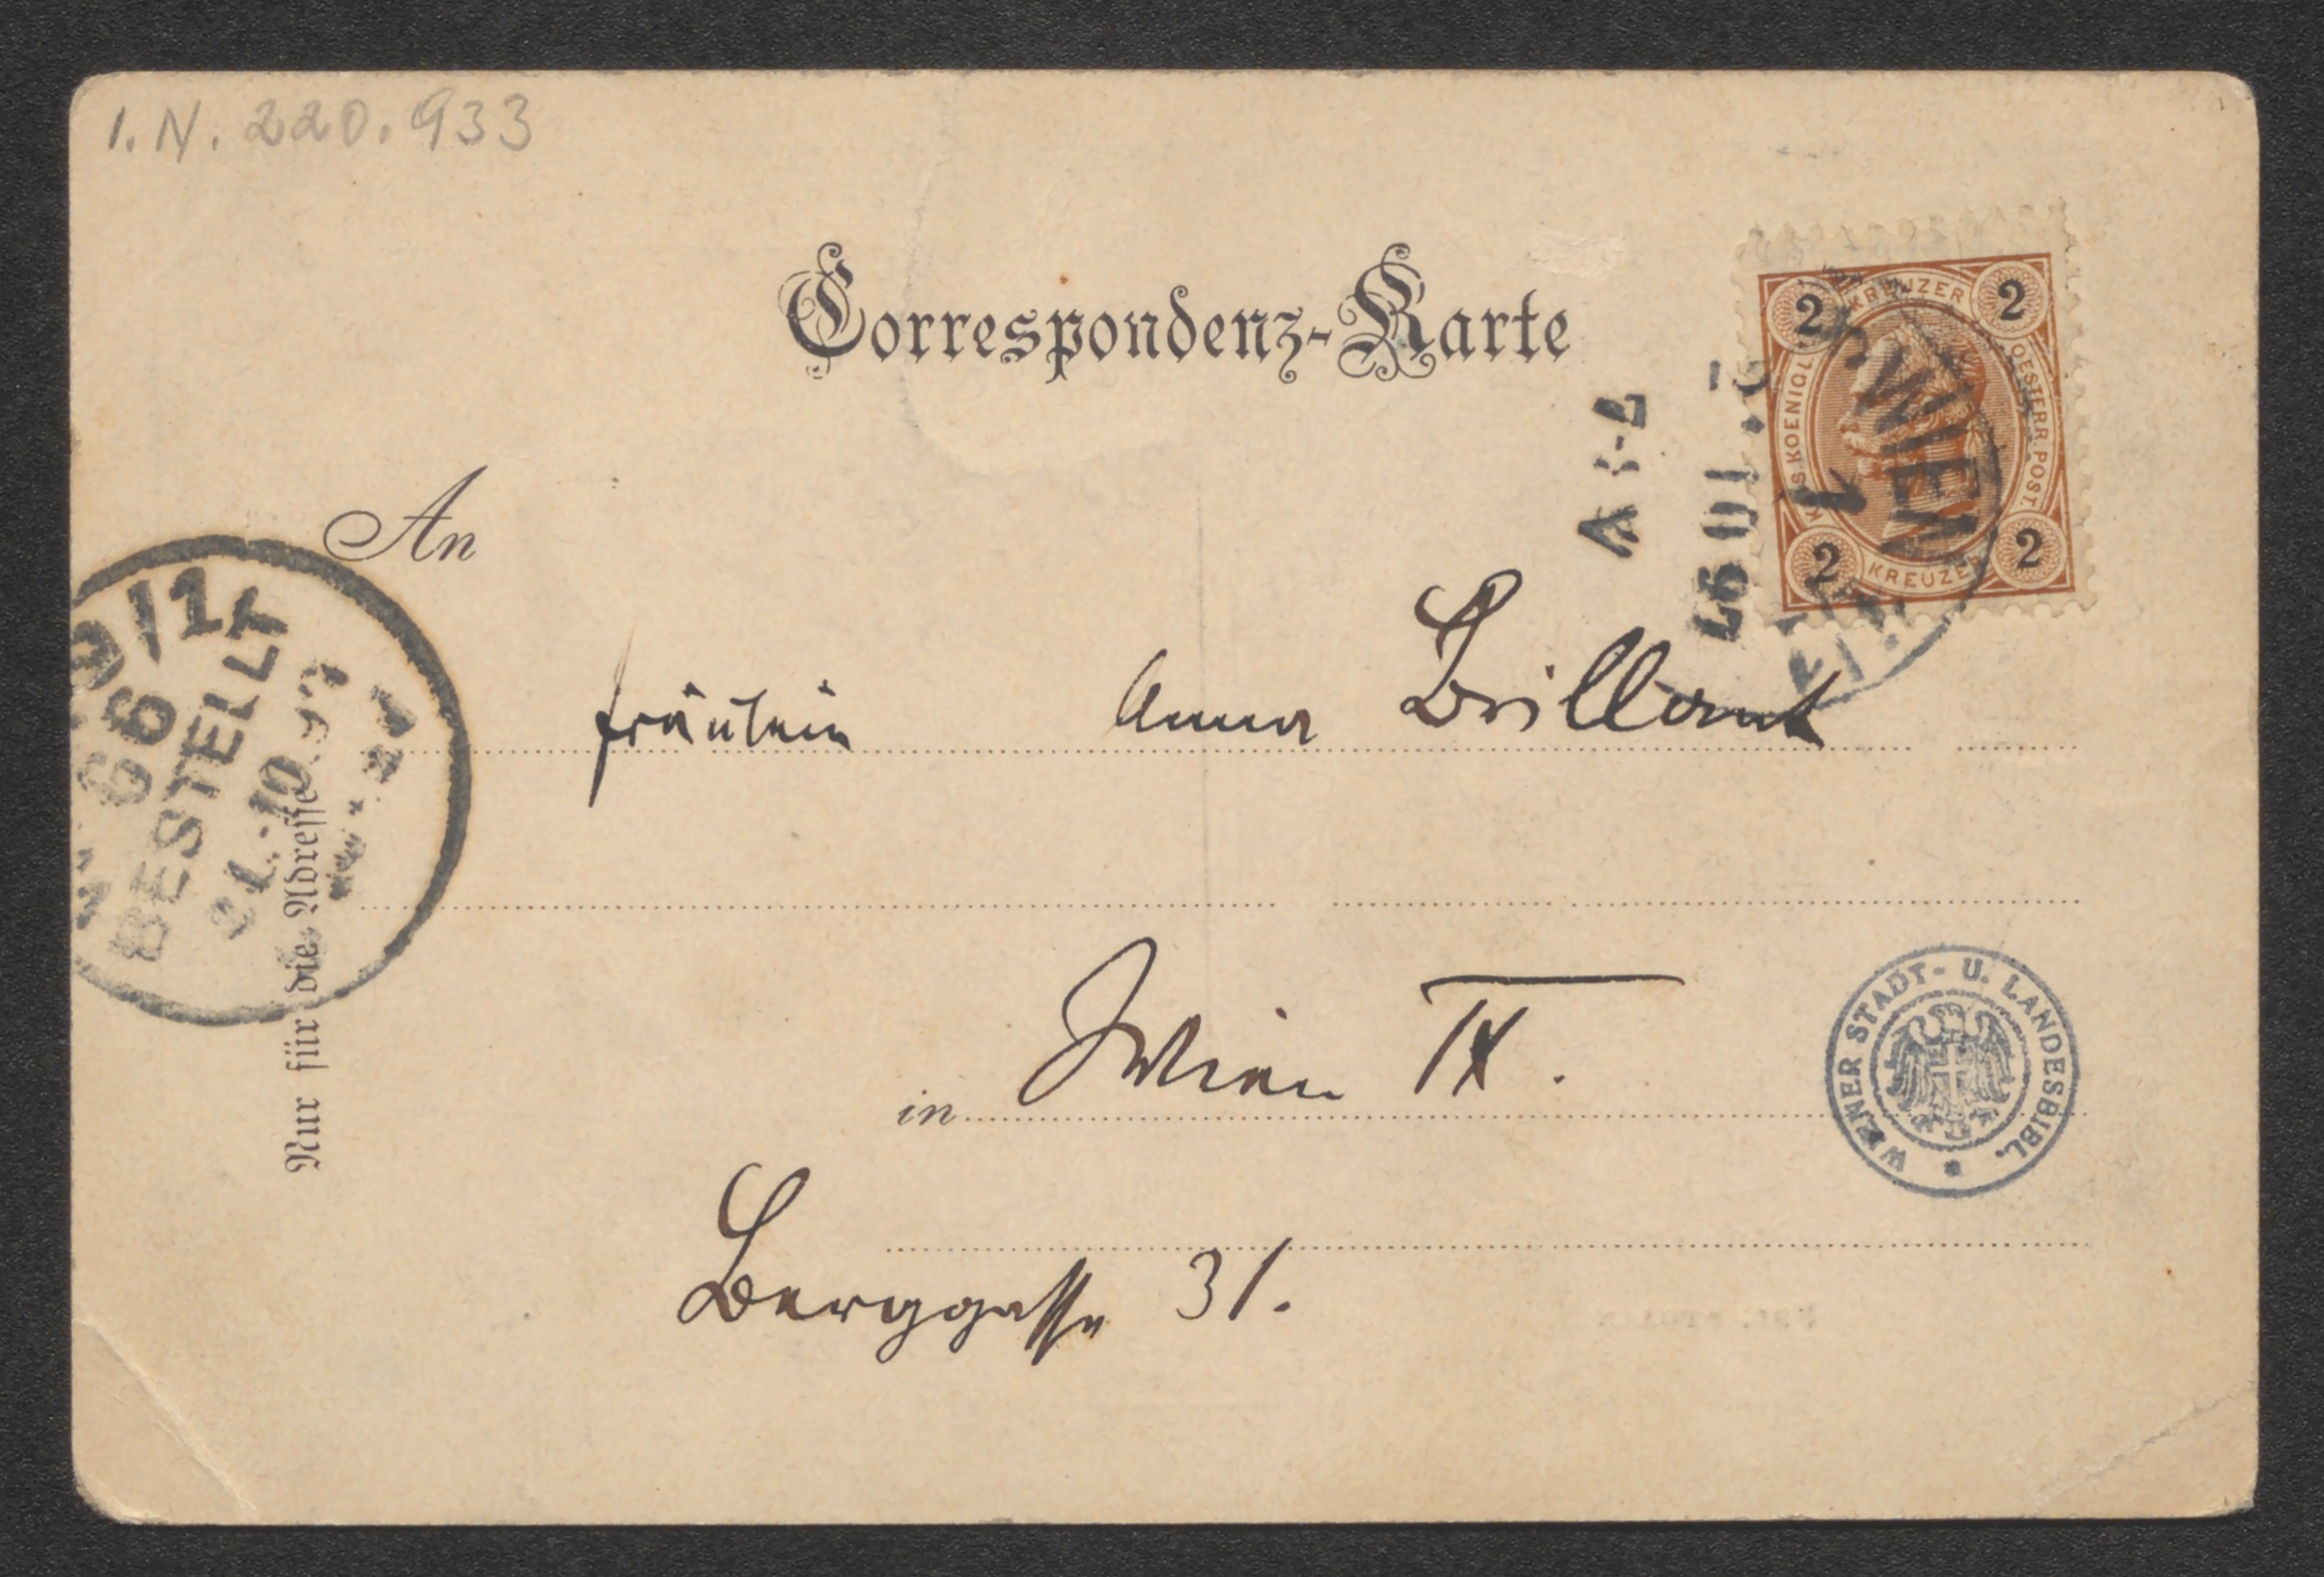 I. N. 220. 933
Correspondenz-Karte
2 KREUZER 2
KAIS. KOENIGL. OESTERR. POST.
2 KREUZER 2
WIEN
1
10 97
7-8 V
An
9/1
66
BESTELLT
21. 10. 97
Nur für die Adresse
Fräulein Anna Brillant
in Wien IX.
Berggasse 31.
WIENER STADT- U. LANDESBIBL.